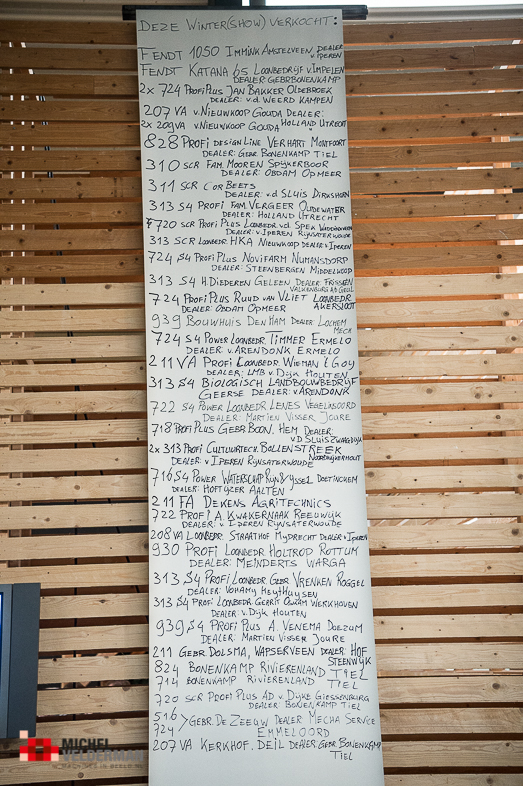 DEZE WINTER(SHOW) VERKOCHT:
FENDT 1050 IMMINK AMSTELVEEN, DEALER
V IPEREN
FENDT KATANA 65 LOONBEDRIJF V IMPELEN
DEALER GEBR BONENKAMP
2x 724 PROFI PLUS JAN BAKKER OLDEBROEK
DEALER: V.D. WEERD KAMPEN
207 VA V. NIEUWKOOP GOUDA DEALER:
2x 209 VA V. NIEUWKOOP GOUDA HOLLAND UTRECHT
828 PROFI DESIGN LINE VERHART MONTFOORT
DEALER: GEBR. BONENKAMP TIEL
310 SCR FAM. MOOREN SPIJKERBOOR
DEALER: OBDAM OPMEER
311 SCR COR BEETS
DEALER: V.D SLUIS DIRKSHORN
313 S4 PROFI FAM. VERGEER OUDEWATER
DEALER: HOLLAND UTRECHT
720 SCR PROFI PLUS LOONBEDR. V.D. SPEK
DEALER: V. IPEREN RIJNSATERWOUDE
313 SCR LOONBEDR. HKA NIEUWKOOP DEALER V IPEREN
724 S4 PROFI PLUS NOVIFARM NUMANSDORP
DEALER: STEENBERGEN MIDDELKOOP
313 S4 H. DIEDEREN GELEEN DEALER: FRISSEN
VALKENBURG A/D GEUL
724 PROFI PLUS RUUD VAN VLIET LOONBEDR
DEALER: OBDAM OPMEER AKERSLOOT
939 BOUWHUIS DEN HAM DEALER: LOCHEM
MECH
724 S4 POWER LOONBEDR. TIMMER ERMELO
DEALER V. ARENDONK ERMELO
211 VA PROFI LOONBEDR. WIEMAN 'T GOY
DEALER: LMB V. DIJK HOUTEN
313 S4 BIOLOGISCH LANDBOUWBEDRIJF
GEERSE DEALER: V ARENDONK
722 S4 POWER LOONBEDR LENES VEGELINSOORD
DEALER: MARTIEN VISSER JOURE
718 PROFI PLUS GEBR. BOON, HEM DEALER:
V.D SLUIS ZWAAGDIJK
2x 313 PROFI CULTUURTECH. BOLLENSTREEK
DEALER: V IPEREN RIJNSATERWOUDE NOORDWIJKERHOUT
716 S4 POWER WATERSCHAP RIJN & IJSSEL DOETINCHEM
DEALER: HOFTIJZER AALTEN
211 FA DEKENS AGRITECHNICS
722 PROFI A. KWAKERNAAK REEUWIJK
DEALER: V IPEREN RIJNSATERWOUDE
208 VA LOONBEDR. STRAATHOF MIJDRECHT DEALER V IPEREN
930 PROFI LOONBEDR HOLTROP ROTTUM
DEALER: MEINDERTS WARGA
313 S4 PROFI LOONBEDR. GEBR VRENKEN ROGGEL
DEALER: VOHAMIJ HEYTHUYSEN
313 S4 PROFI LOONBEDR. GERRIT OSKAM WERKHOVEN
DEALER: V. DIJK HOUTEN
939 S4 PROFI PLUS A. VENEMA DOEZUM
DEALER: MARTIEN VISSER JOURE
211 GEBR. DOLSMA, WAPSERVEEN DEALER: HOF
STEENWIJK
824 BONENKAMP RIVIERENLAND TIEL
714 BONENKAMP RIVIERENLAND TIEL
720 SCR PROFI PLUS AD V. DIJKE GIESSENBURG
DEALER: BONENKAMP TIEL
516 > GEBR. DE ZEEUW DEALER MECHA SERVICE
724 EMMELOORD
207 VA KERKHOF, DEIL DEALER: GEBR BONENKAMP
TIEL
MICHEL
VELDERMAN